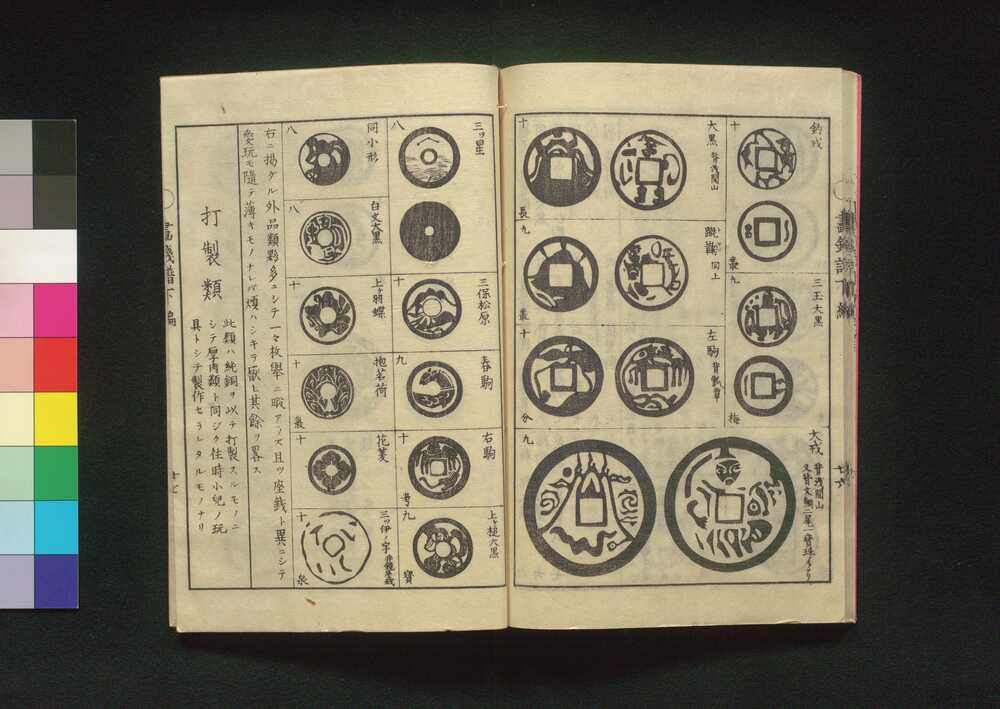 釣戎
十
叢
三玉大黒
九
梅
大黒 背浅間山
十
長
駒 同上
九
叢
左駒
十
分
大戎 背浅間山
九
三ツ星
八
三保松原
十
春駒
九
右駒
十
考
上ヶ槌大黒
九
寶
同小形
八
白文大黒
八
上ヶ羽蝶
十
抱茗荷
十
叢
花菱
十
三ツ伊ノ字
十
泉
右ニ掲グル外品類夥多ニシテ一々枚舉ニ暇アラズ且ツ座銭ト異ニシテ
愛玩モ隨テ薄キモノナレバ煩ハシキヲ厭ヒ其餘ヲ畧ス
打製類
此類ハ純銅ヲ以テ打製スルモノニ
シテ厚肉類ト同ジク往時小兒ノ玩
具トシテ製作セラレタルモノナリ
十七